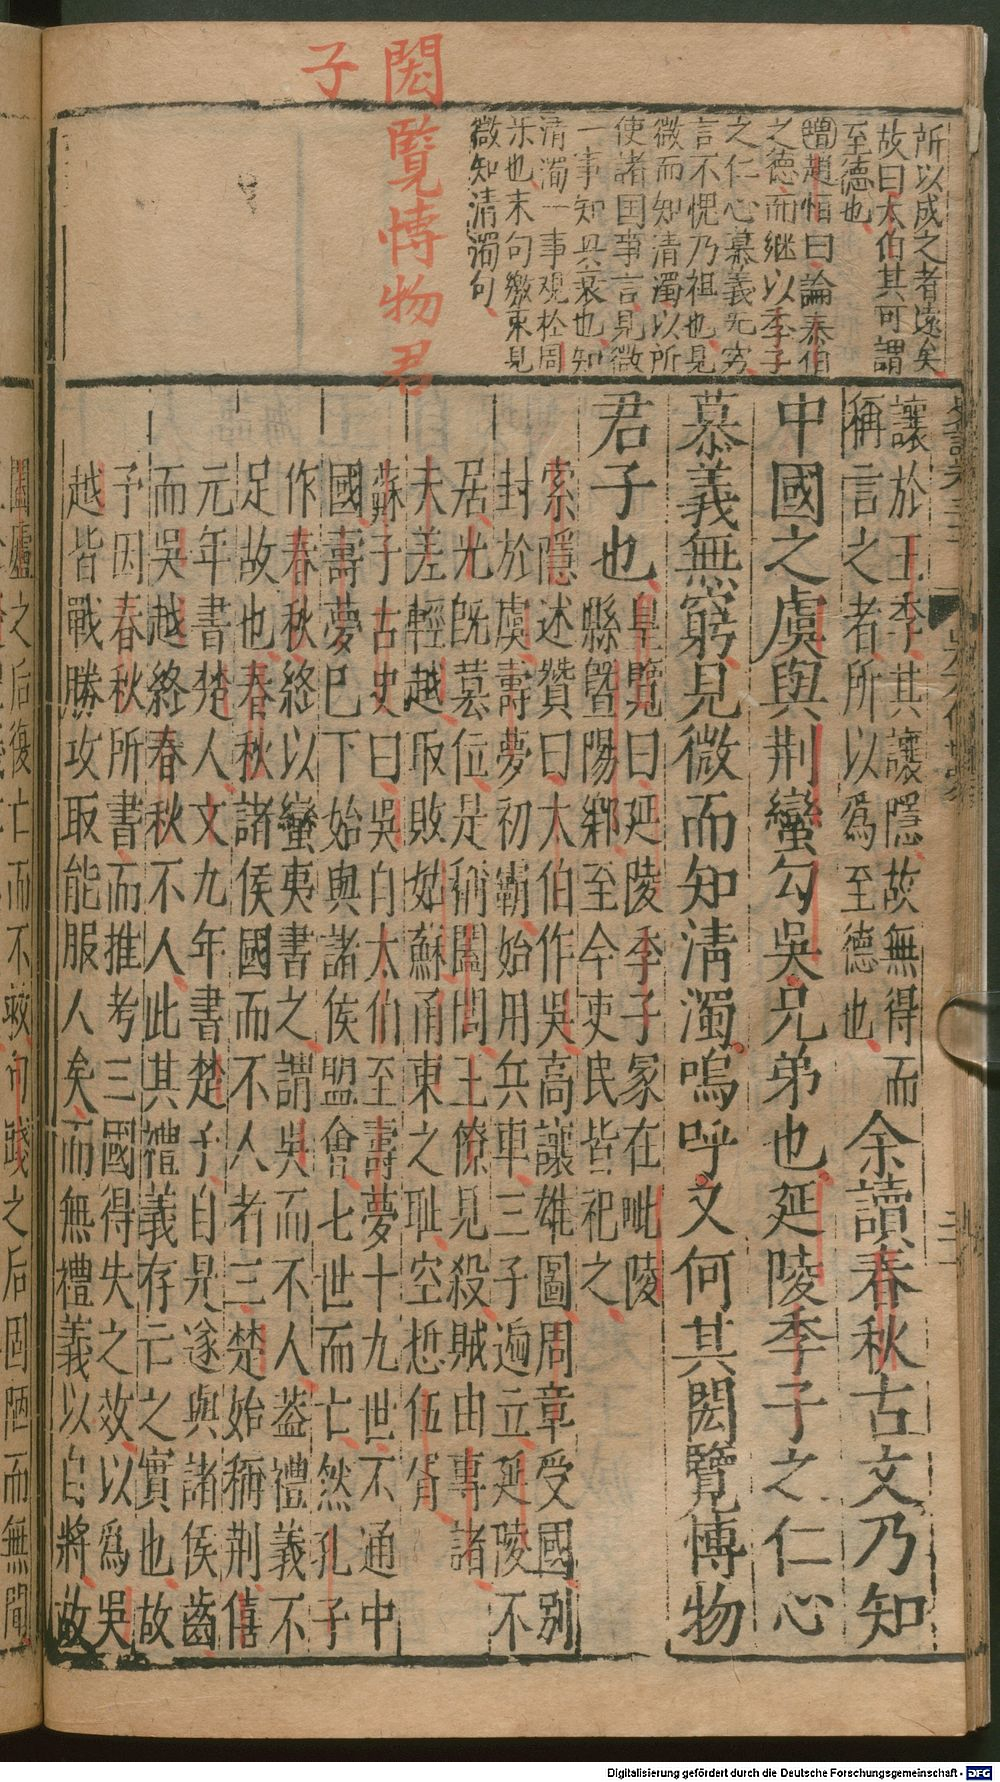 閎覽博物君
子
所以成之者遠矣
故曰太伯其可謂
至德也
增趙恒曰論泰伯
之德而継以季子
之仁心慕義无穷
言不愧乃祖也見
微而知清濁以所
使諸国事言見微
一事知興衰也知
清濁一事观於周
乐也末句繳束見
微知清濁句
讓於王季其讓隱故無得而
稱言之者所以爲至德也
余讀春秋古文乃知
中國之虞與荆蠻勾吳兄弟也延陵季子之仁心
慕義無窮見微而知淸濁嗚呼又何其閎覽博物
君子也
皇覽曰延陵季子冢在毗陵
縣曁陽鄕至今吏民皆祀之
索隱述贊曰太伯作吳高讓雄圖周章受國别
封於虞壽夢初霸始用兵車三子遞立延陵不
居光旣簒位是稱闔閭王僚見殺賊由專諸
夫差輕越取敗姑蘇甬東之耻空慙伍胥
蘇子古史曰吳自太伯至壽夢十九世不通中
國壽夢巳下始與諸侯盟會七世而亡然孔子
作春秋終以蠻夷書之謂吳而不人葢禮義不
足故也春秋諸侯國而不人者三楚始稱荆僖
元年書楚人文九年書楚子自是遂與諸侯齒
而吳越終春秋不人此其禮義存亡之實也故
予因春秋所書而推考三國得失之效以爲吳
越皆戰勝攻取能服人矣而無禮義以自將故
闔廬之后復亡而不救句踐之后固陋而無聞
Digitalisierung gefördert durch die Deutsche Forschungsgemeinschaft - DFG